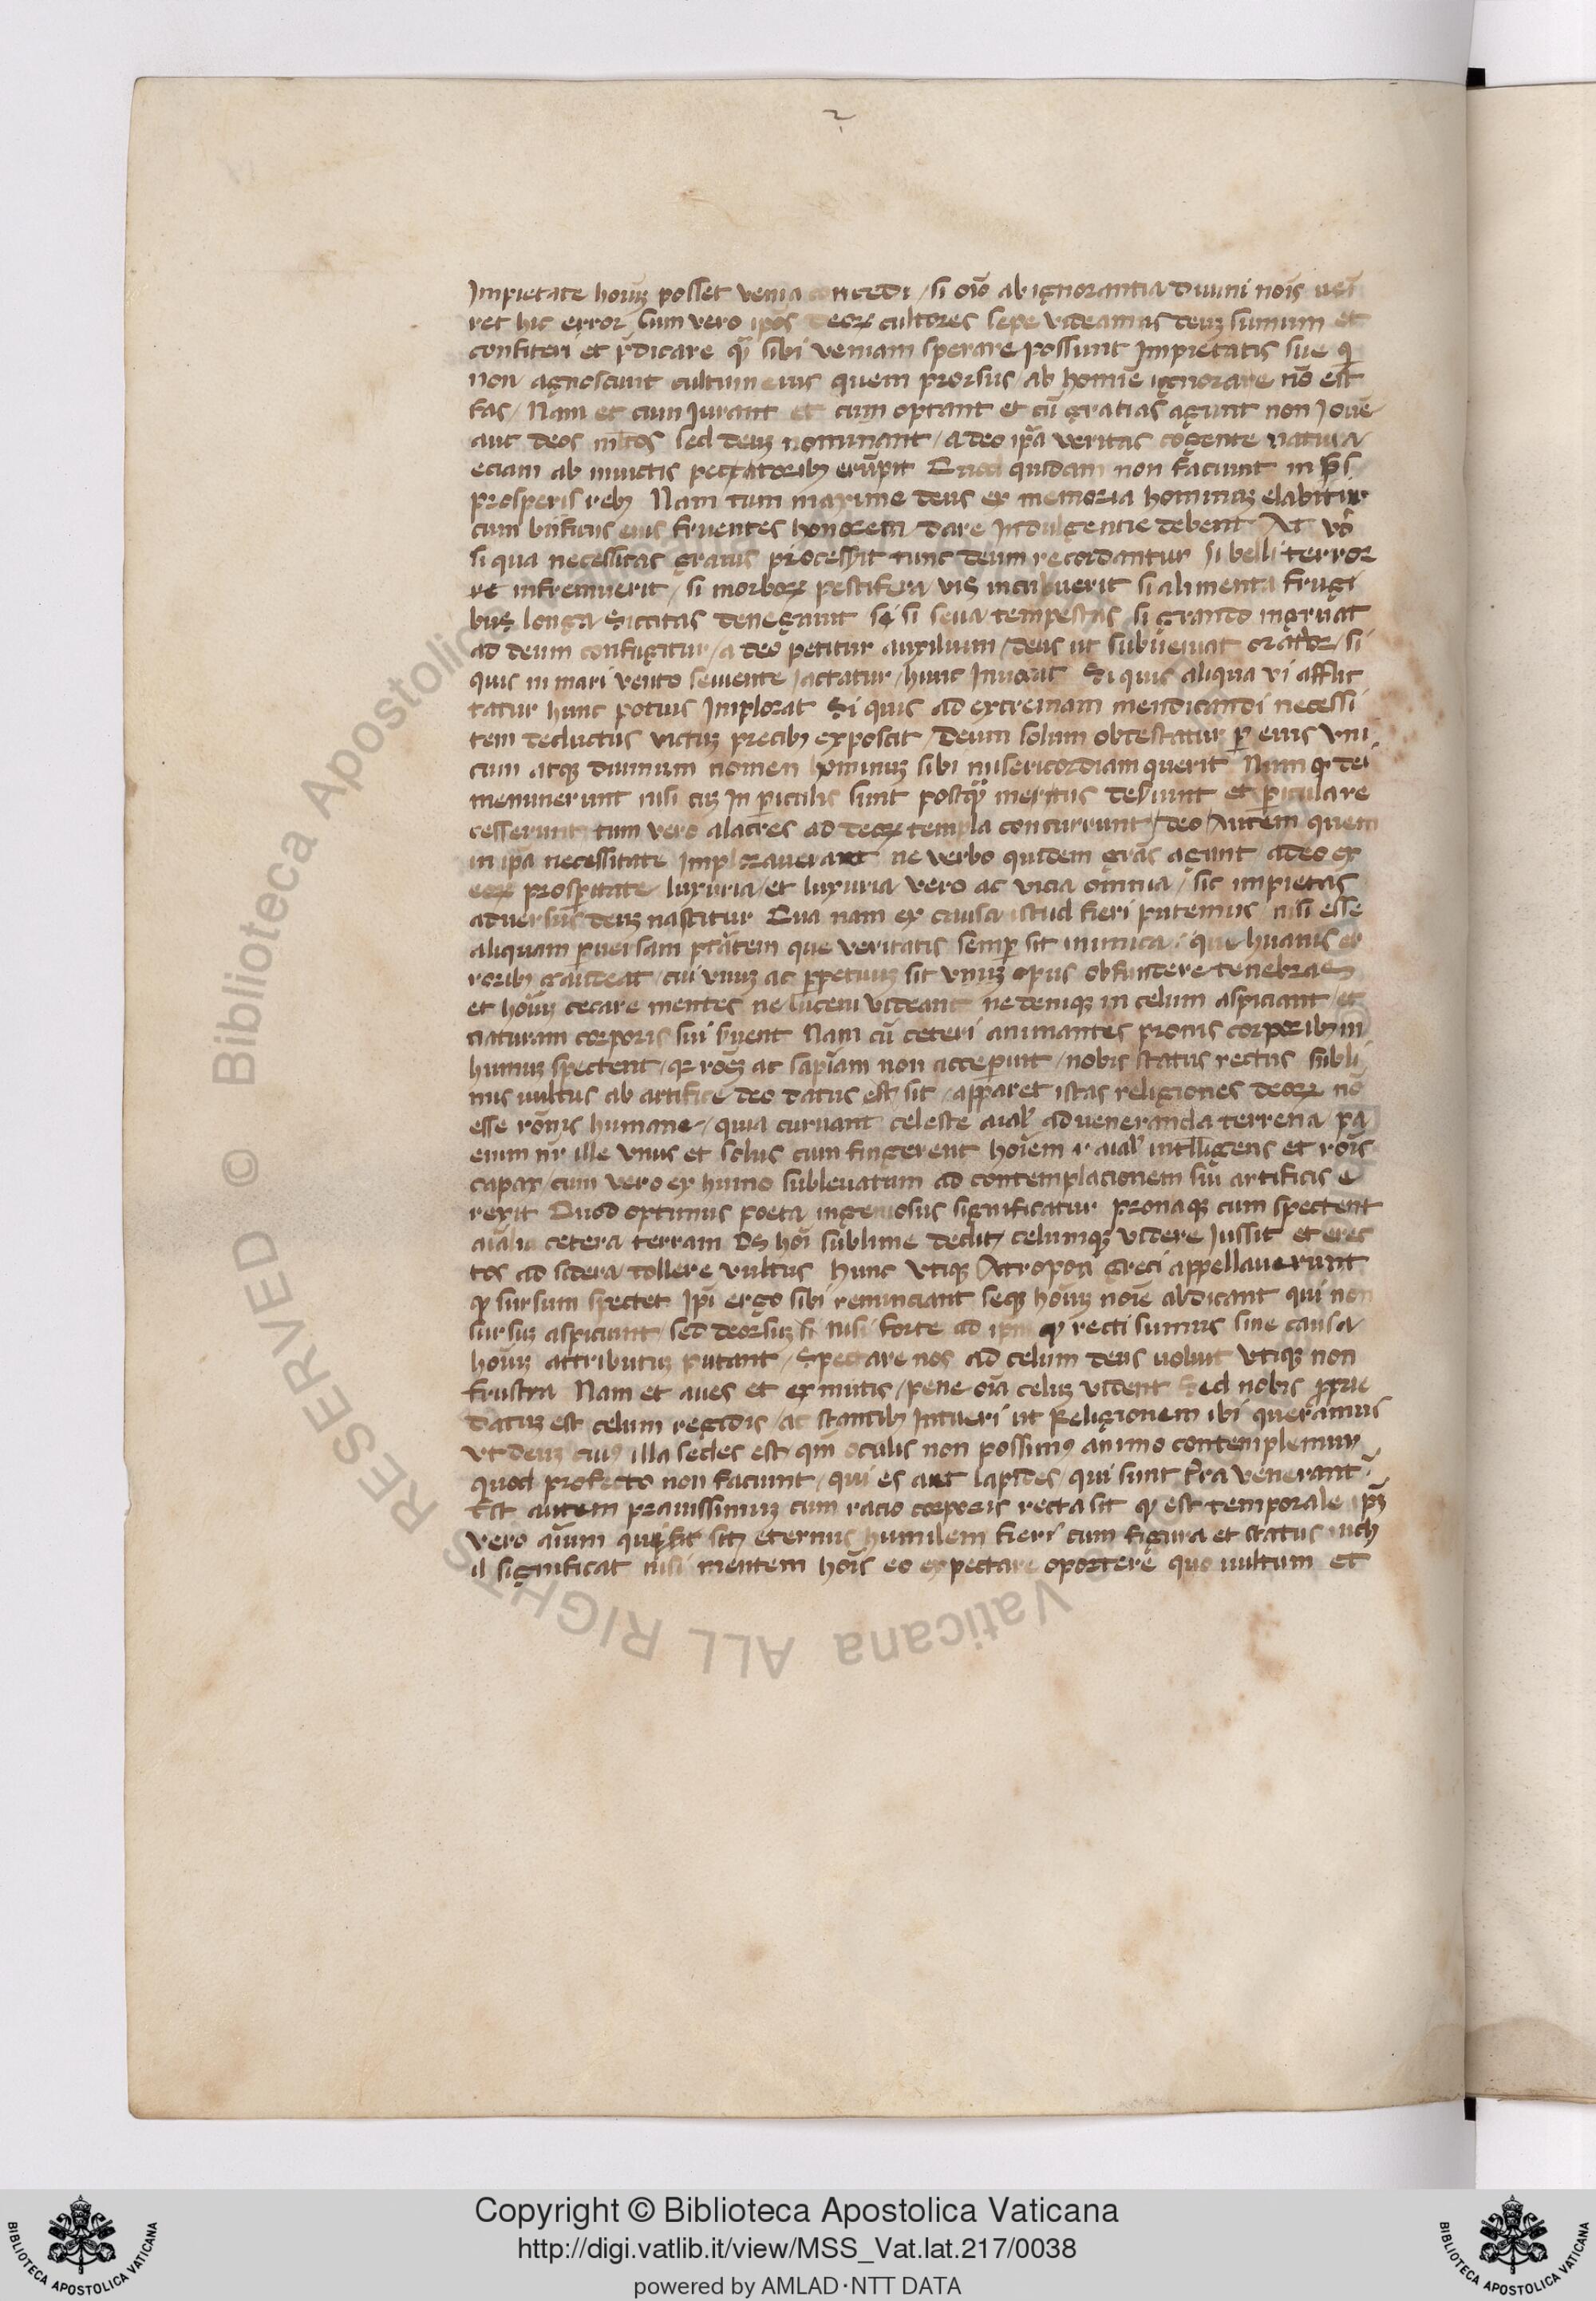 2
Impietate hoīuꝫ posset venia concedi / si oīo ab ignorantia diuini noīs ueī
ret hic error / Cum vero ip̄os deoꝝ cultores sepe videamus deuꝫ sumum et
confiteri et p̄dicare qͣ sibi veniam sperare possunt Impietatis sue qͥ
non agnoscunt cultum eius quem prorsus / ab homīe ignorare nō est
fas / Nam et cum Jurant et cum optant et cū gratias agunt non Jouē
aut deos mltos sed deuꝫ nominant / adeo ip̄a veritas cogente natura
eciam ab inuictis pectoribꝫ erūpit Quod quidam non faciunt in
prosperis rebꝫ Nam tum maxime deus ex memoria hominuꝫ elabitur
cum bn̄ficiis eius fruentes honorem dare Indulgentie debent At vō
si qua necessitas grauis processit tunc deum recordantur Si belli terror
infremuerit / si morboꝝ pestifera vis incubuerit si alimenta frugi
bus longa Siccitas denegauit si seua tempestas si grando ingruat
ad deum confugitur / a deo petitur auxilium / deus ut subueniat oratͬ / si
quis in mari vento seuiente Jactatur / hunc Inuocat Si quis aliqua vi afflic
tatur hunc potius Implorat Si quis ad extremam mendicandi necessi
tem deductus victuꝫ precibꝫ exposcit / Deum solum obtestatur ꝑ eius vni
cum atqꝫ diuinum nomen hominuꝫ sibi misericordiam querit Nunqͣ dei
meminerunt nisi cuꝫ In ꝑiculis sunt postqͣ metus deseruit et ꝑicula re
cesserunt tum vero alacres ad deoꝝ templa concurrunt / deo Autem quem
in ip̄a necessitate Implorauerant ne verbo quidem grās agunt adeo ex
eoꝝ prosꝑitate luxuria / et luxuria vero ac vicia omnia / sic impietas
aduersus deuꝫ nascitur Qua nam ex causa istud fieri putemus / nisi esse
aliquam ꝑuersam ptātem que veritatis semꝑ sit inimica / que huanis er
roribꝫ gaudeat / cui vnuꝫ ac ꝑpetuuꝫ sit vnuꝫ opus obfundere tenebras
et hoīuꝫ cecare mentes ne lucem videant ne deniqꝫ in celum aspiciant / et
naturam corporis sui suent Nam cū ceteri animantes pronis corporibꝫ in
humuꝫ spectent / qꝛ rōeꝫ ac sapīam non acceperunt / nobis status rectus subli
mis uultus ab artifice deo datus est sit / apparet istas religiones deoꝝ nō
esse rōnis humane / quia curuant celeste aīal ad veneranda terrena pa
enim nr̄ ille vnus et solus cum fingerent hoīem / aīal intlligens et rōis
capax cum vero ex humo subleuatum ad contemplacionem sui artificis e
rexit Quod optimus poeta ingeniosus significatur pronaqꝫ cum spectent
aīalia cetera terram Os hoī sublime dedit celumqꝫ videre Jussit et erec
tos ad sidera tollere vultus hunc vtiqꝫ Atropon greci appellauerunt
qͩ sursum spectet Ip̄i ergo sibi renunciant seqꝫ hoīuꝫ noīe abdicant qui non
sursuꝫ aspiciunt sed deorsuꝫ nisi forte ad ipm̄ qͩ recti sumus sine causa
hoīuꝫ attributuꝫ putant / Spectare nos ad celum deus uoluit vtiqꝫ non
frustra Nam et aues et ex mutis / pene oīa celuꝫ vident Sed nobis ꝓprie
datuꝫ est celum regidis / ac stantibꝫ Intueri ut Religionem ibi queramus
vt deuꝫ cuiꝰ illa sedes est qm̄ oculis non possimꝰ animo contemplemur
quod profecto non faciunt / qui es aut lapides / qui sunt tr̄a venerantͬ
Est autem prauissimuꝫ cum racio corporis recta sit qͩ est temporale ipꝫ
vero aīum qui sit eternus humilem fieri cum figura et status nich
il significat nisi mentem hoīs eo expectare oportere quo uultum et
Copyright © Biblioteca Apostolica Vaticana
http://digi.vatlib.it/view/MSS_Vat.lat.217/0038
powered by AMLAD·NTT DATA